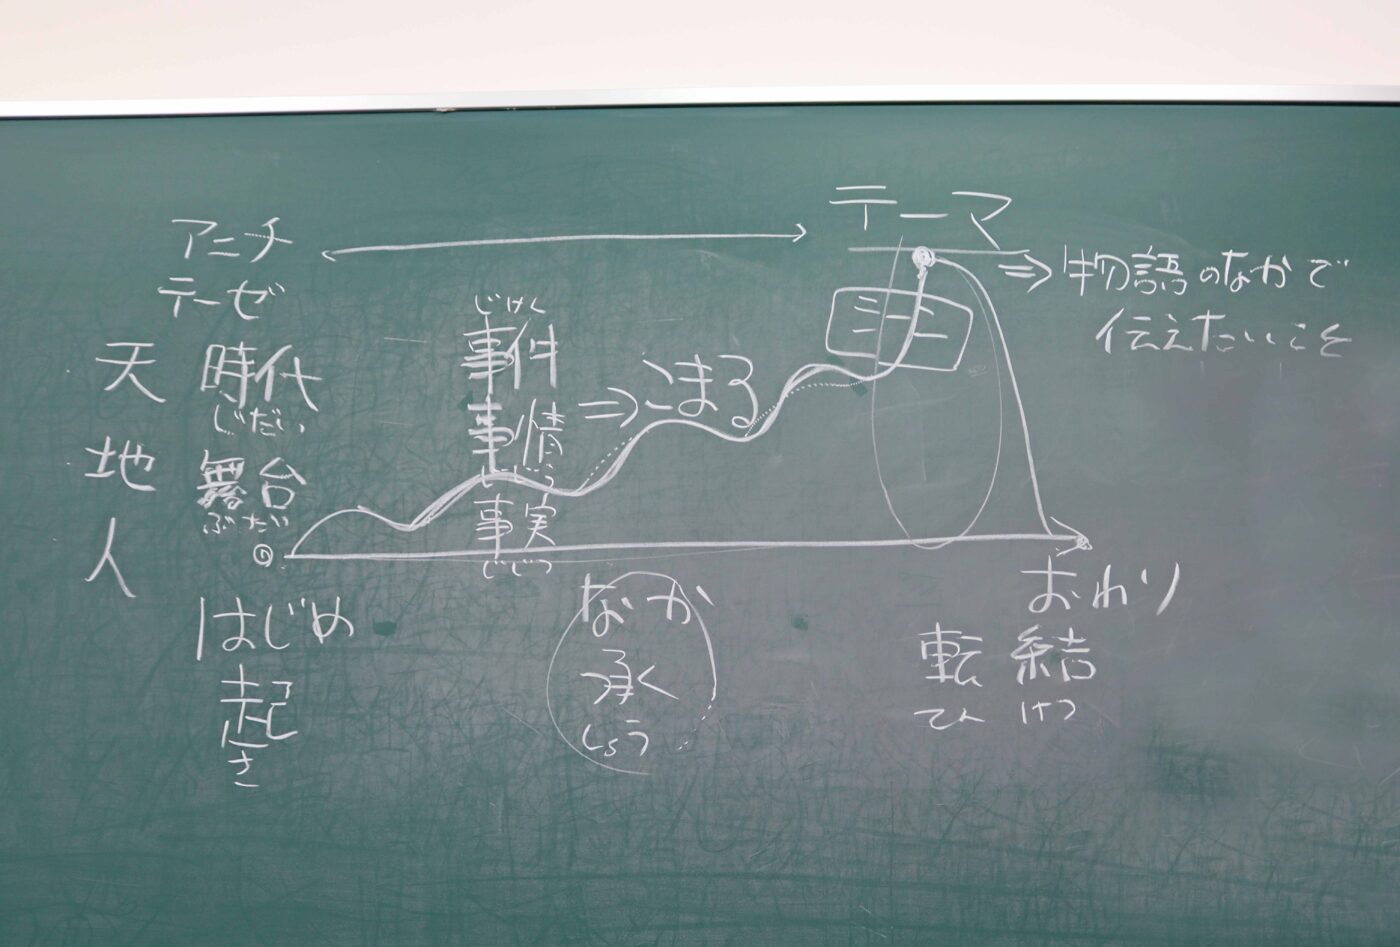 テーマ
アンチ
テーゼ
⇒物語のなかで
伝えたいこと
天 時代
じだい
地 舞台
ぶたい
人
じけん
事件
事情
⇒こまる
じじょう
事実
じじつ
はじめ
起
き
なか
承
しょう
おわり
転 結
てん けつ